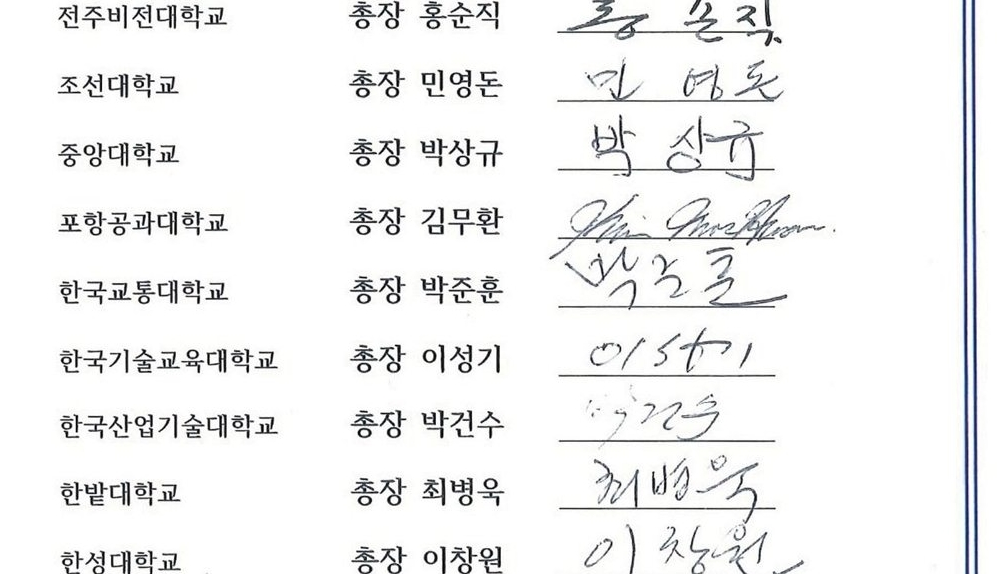 전주비전대학교 총장 홍순직 홍순직
조선대학교 총장 민영돈 민영돈
중앙대학교 총장 박상규 박상규
포항공과대학교 총장 김무환
한국교통대학교 총장 박준훈 박준훈
한국기술교육대학교 총장 이성기 이성기
한국산업기술대학교 총장 박건수 박건수
한밭대학교 총장 최병욱 최병욱
한성대학교 총장 이창원 이창원